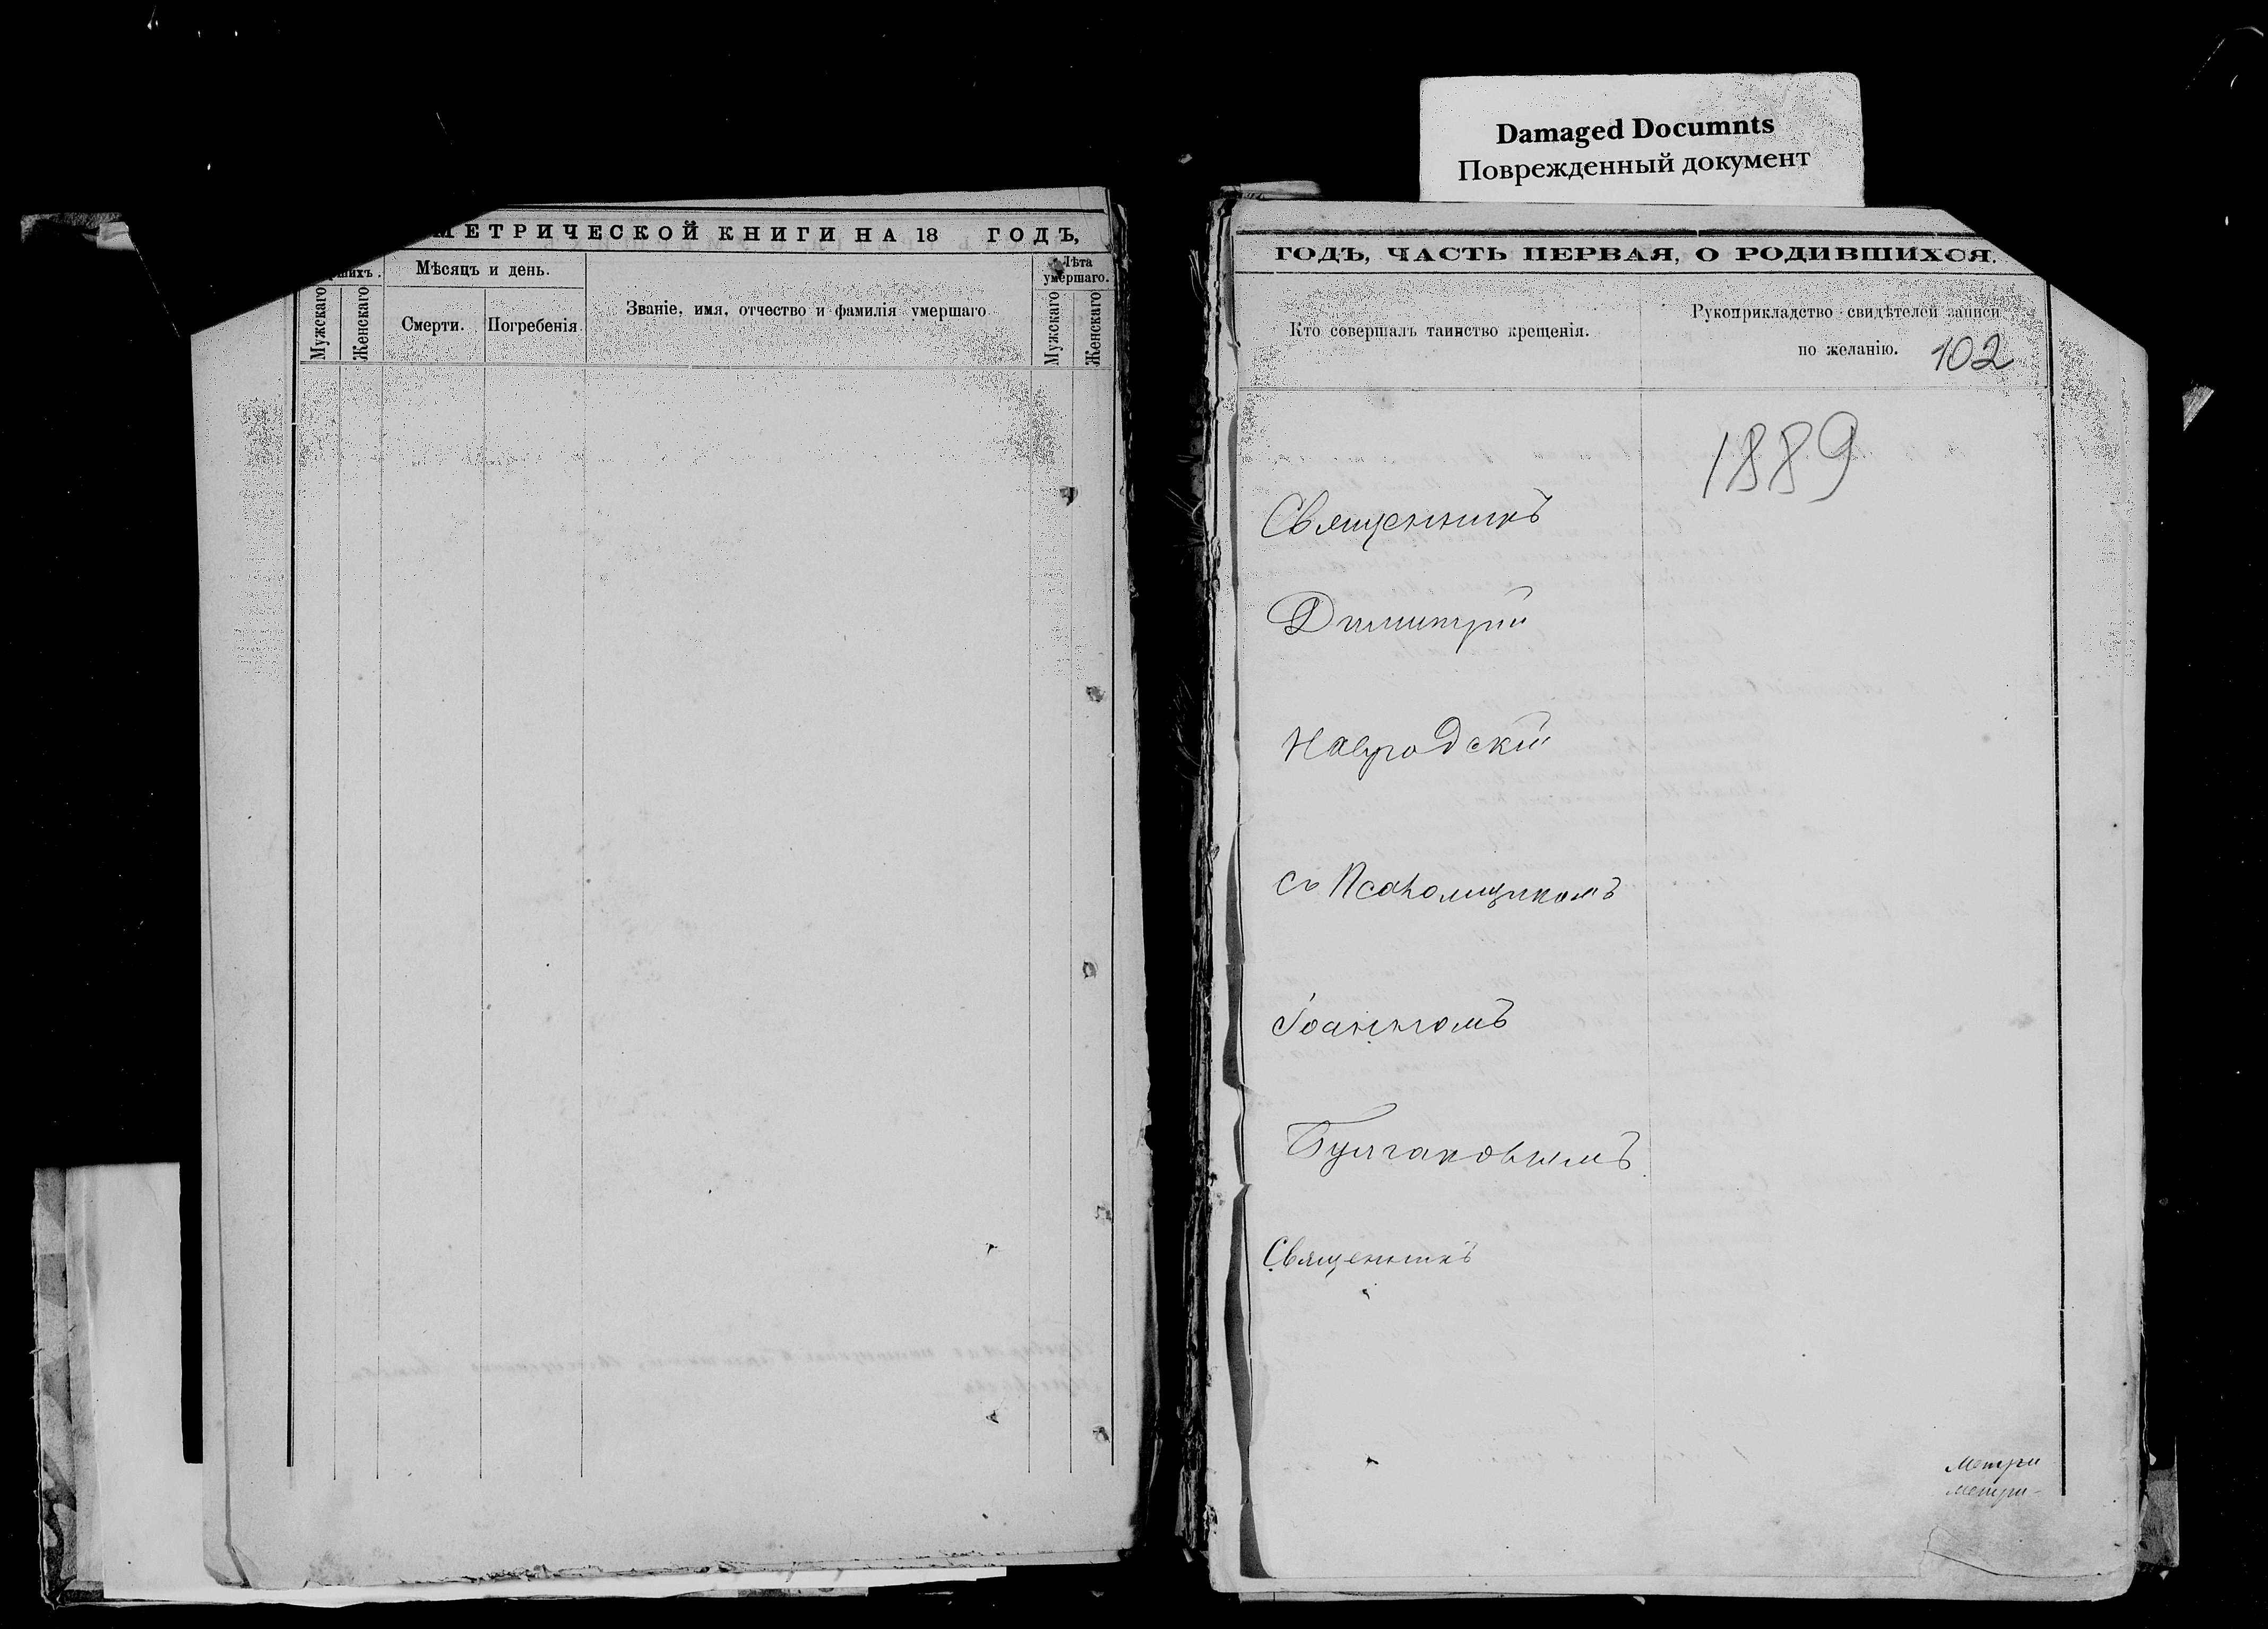 Damaged Documnts
Поврежденный документ
МЕТРИЧЕСКОЙ КНИГИ НА 18 ГОДЪ,
Мѣсяцъ и день.
Лѣта умершаго.
Мужскаго
Женскаго
Смерти.
Погребенія
Званіе, имя, отчество и фамилія умершаго
Мужскаго
Женскаго
ГОДЪ, ЧАСТЬ ПЕРВАЯ, О РОДИВШИХСЯ.
Кто совершалъ таинство крещенія.
Рукоприкладство свидѣтелей записи
по желанію.
102
1889
Священникъ
Димитрій
Навродскій
съ Псаломщикомъ
Іоанномъ
Булгаковымъ
Священникъ
Метри
Метри-